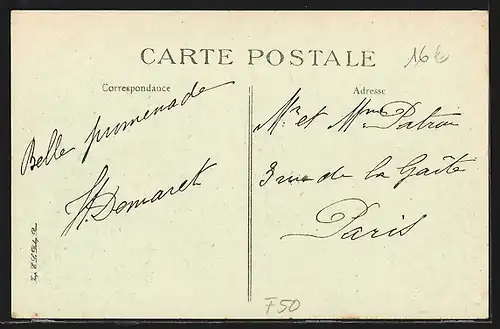 CARTE POSTALE
16€
Correspondance
Belle promenade
H. Demaret
Adresse
Mr et Mme Patron
3 rue de la Gaîte
Paris
F50